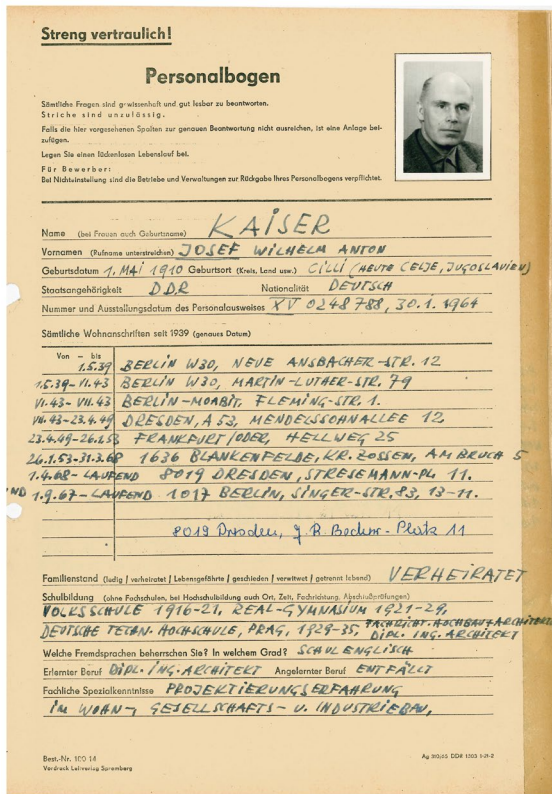 Streng vertraulich!
Personalbogen
Sämtliche Fragen sind gewissenhaft und gut lesbar zu beantworten.
Striche sind unzulässig.
Falls die hier vorgesehenen Spalten zur genauen Beantwortung nicht ausreichen, ist eine Anlage bei-
zufügen.
Legen Sie einen lückenlosen Lebenslauf bei.
Für Bewerber:
Bei Nichteinstellung sind die Betriebe und Verwaltungen zur Rückgabe Ihres Personalbogens verpflichtet.
Name (bei Frauen auch Geburtsname) KAISER
Vornamen (Rufname unterstreichen) JOSEF WILHELM ANTON
Geburtsdatum 1. MAI 1910 Geburtsort (Kreis, Land usw.) CILLI (HEUTE CELJE, JUGOSLAVIEN)
Staatsangehörigkeit DDR Nationalität DEUTSCH
Nummer und Ausstellungsdatum des Personalausweises XV 0248788, 30.1.1964
Sämtliche Wohnanschriften seit 1939 (genaues Datum)
Von – bis
1.5.39 BERLIN W30, NEUE ANSBACHER-STR. 12
1.5.39-VI.43 BERLIN W30, MARTIN-LUTHER-STR. 79
VI.43-VII.43 BERLIN-MOABIT, FLEMING-STR. 1.
VII.43-23.4.49 DRESDEN, A 53, MENDELSSOHNALLEE 12
23.4.49-26.1.53 FRANKFURT/ODER, HELLWEG 25
26.1.53-31.3.68 1636 BLANKENFELDE, KR. ZOSSEN, AM BRUCH 5
1.4.68-LAUFEND 8019 DRESDEN, STRESEMANN-PL. 11.
UND 1.9.67-LAUFEND 1017 BERLIN, SINGER-STR. 83, 13-11.
8019 Dresden, J. R. Becher-Platz 11
Familienstand (ledig / verheiratet / Lebensgefährte / geschieden / verwitwet / getrennt lebend) VERHEIRATET
Schulbildung (ohne Fachschulen, bei Hochschulbildung auch Ort, Zeit, Fachrichtung, Abschlußprüfungen)
VOLKSSCHULE 1916-21, REAL-GYMNASIUM 1921-29,
DEUTSCHE TECHN. HOCHSCHULE, PRAG, 1929-35, FACHRICHT. HOCHBAU+ARCHITEKT
DIPL. ING. ARCHITEKT
Welche Fremdsprachen beherrschen Sie? In welchem Grad? SCHULENGLISCH
Erlernter Beruf DIPL. ING. ARCHITEKT Angelernter Beruf ENTFÄLLT
Fachliche Spezialkenntnisse PROJEKTIERUNGSERFAHRUNG
IM WOHN-, GESELLSCHAFTS- U. INDUSTRIEBAU,
Best.-Nr. 100 14
Vordruck Leitverlag Spremberg